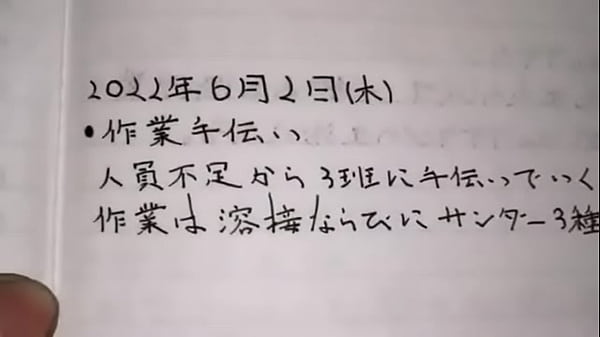 2022年6月2日(木)
•作業手伝い
人員不足から3班に手伝いっていく
作業は溶接ならびにサンダー3種